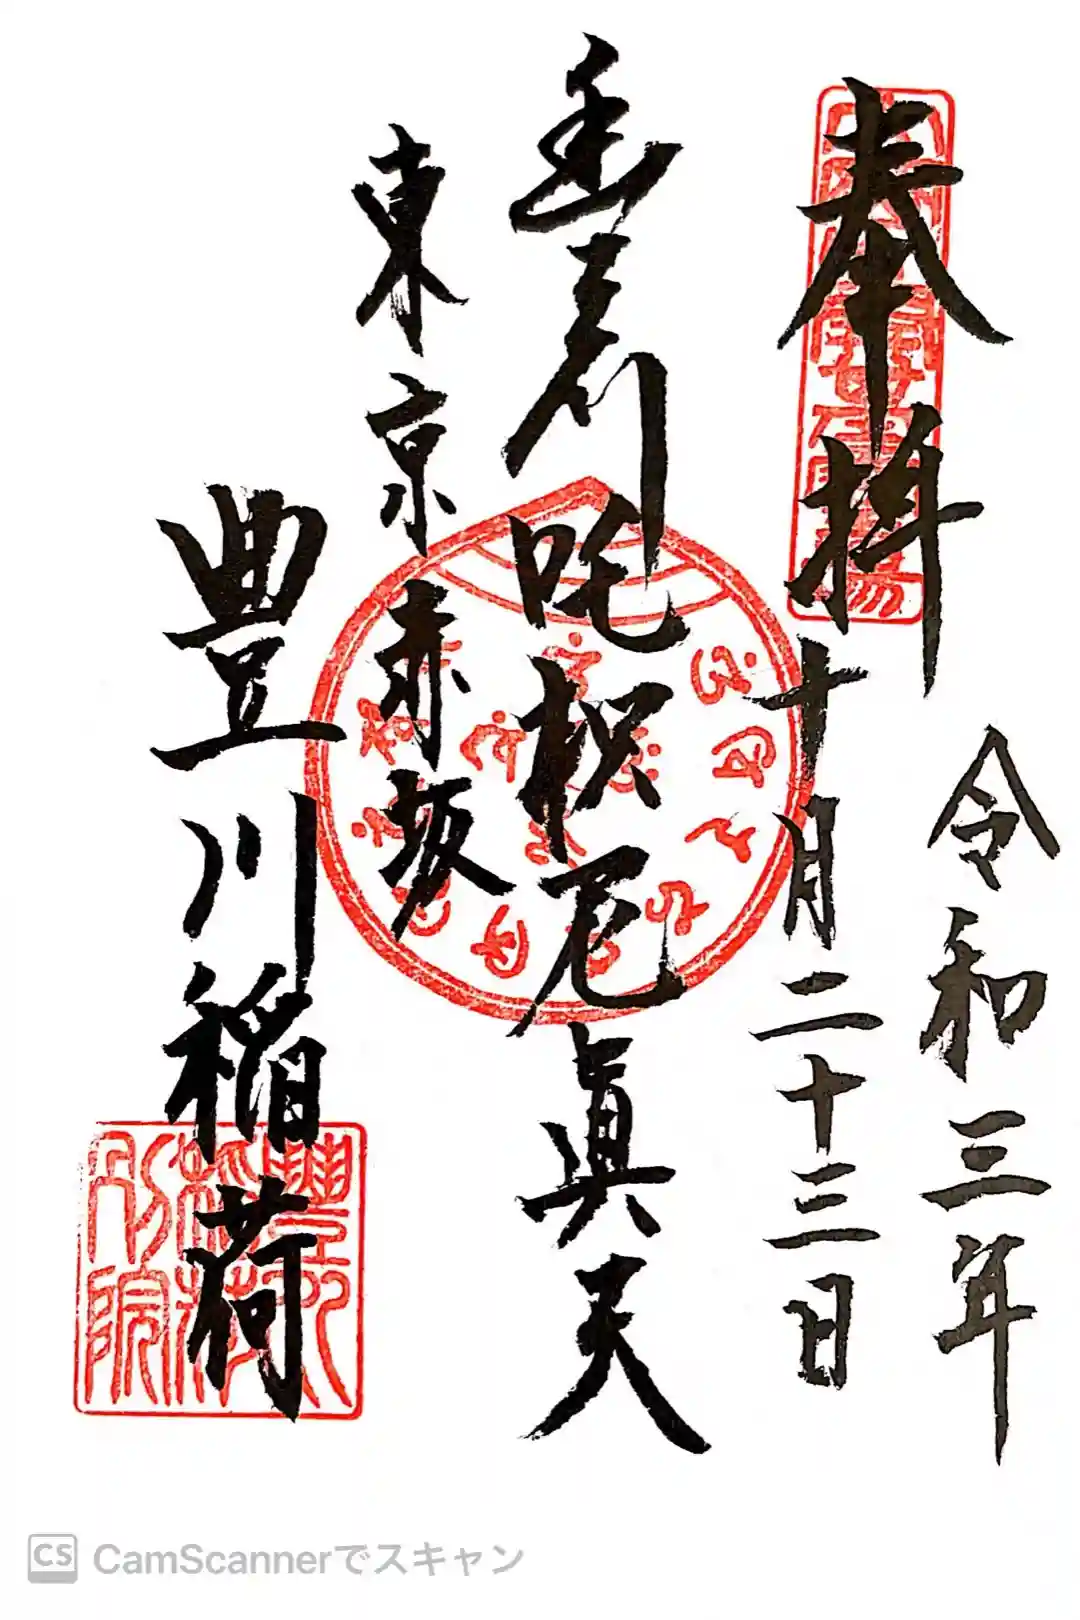 奉拝
令和三年
十月二十三日
豊川吒枳尼眞天
東京赤坂
豊川稲荷
CamScannerでスキャン